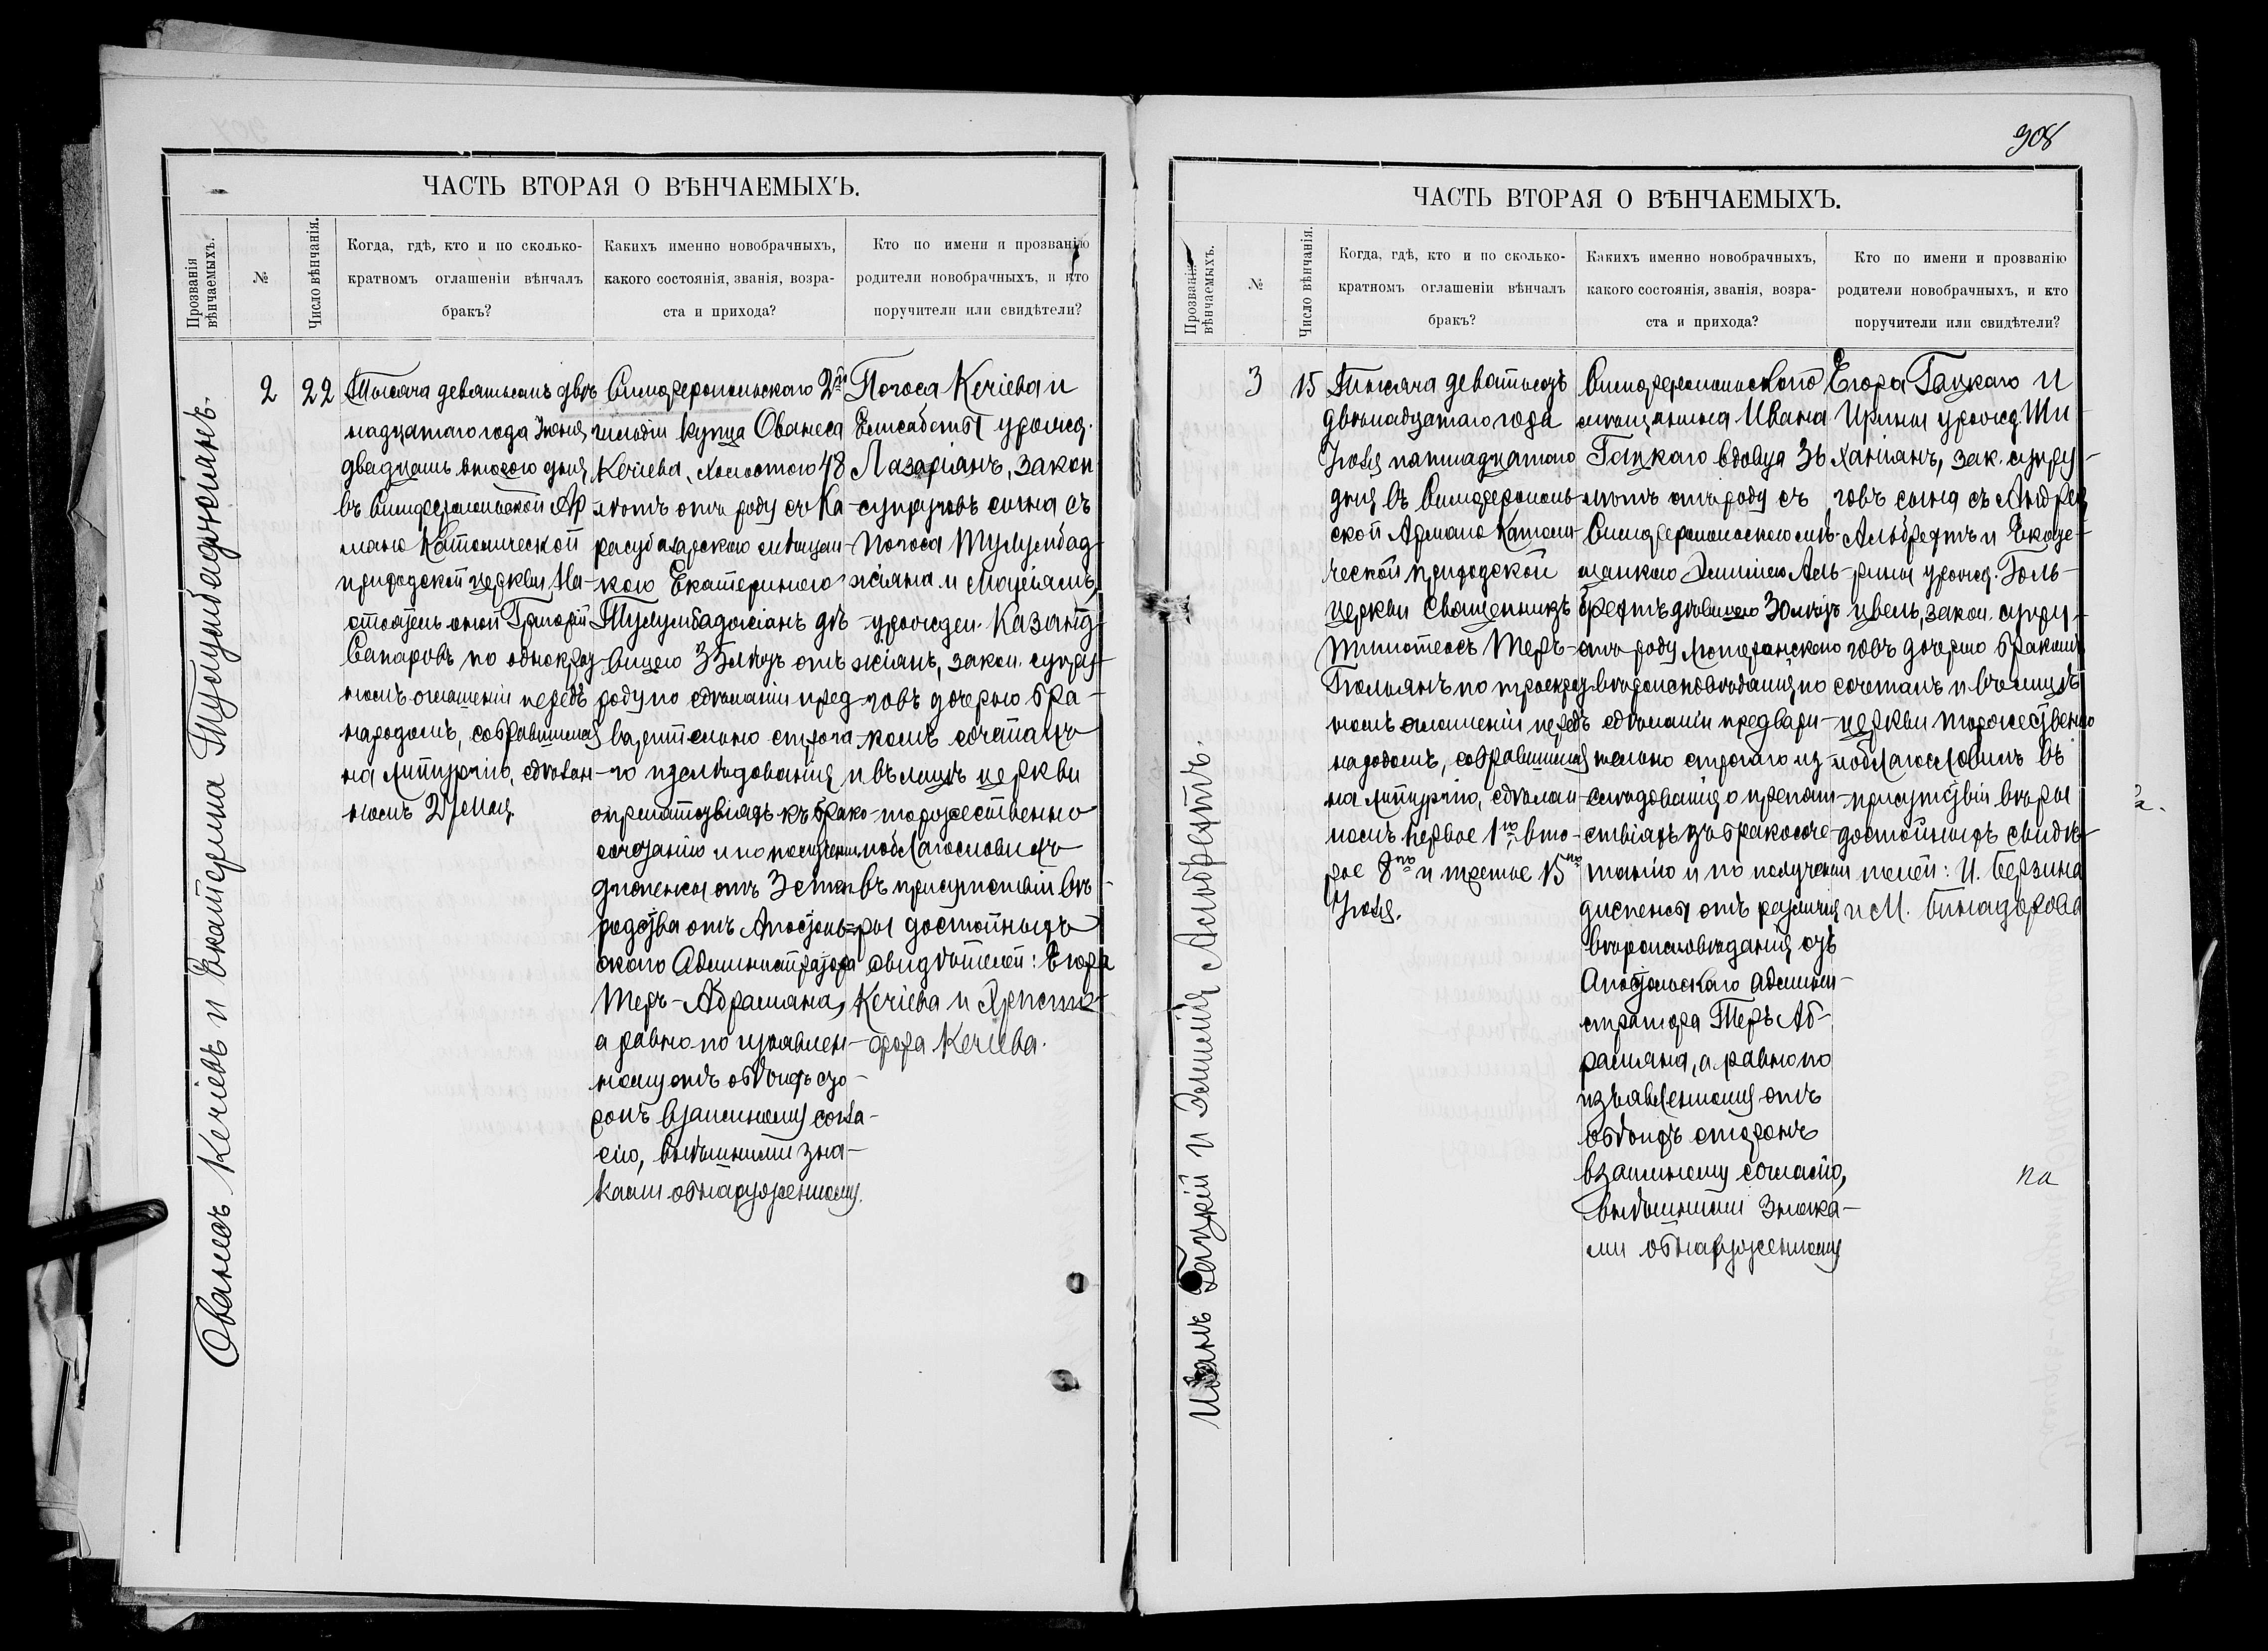 308
ЧАСТЬ ВТОРАЯ О ВѢНЧАЕМЫХЪ.
Прозванія
вѣнчаемыхъ.
№
Число вѣнчанія.
Когда, гдѣ, кто и по сколько-
кратномъ оглашеніи вѣнчалъ
бракъ?
Какихъ именно новобрачныхъ,
какого состоянія, званія, возра-
ста и прихода?
Кто по имени и прозванію
родители новобрачныхъ, и кто
поручители или свидѣтели?
Ованесъ Кечіевъ и Екатерина Тулумбаджіянъ.
2
22
Тысяча девятьсотъ двѣ
надцатаго года Іюня
двадцать второго дня
въ Симферопольской Ар
мяно Католической
приходской церкви На-
стоятель оной Григорій
Сапаровъ по однократ
номъ оглашеніи передъ
народомъ, собравшимся
на литургію, сдѣлан-
номъ 27 мая
Симферопольскаго 2й
гильдіи купца Ованеса
Кечіева, холостого 48
лѣтъ отъ роду съ Ка-
расубазарскою мѣщан-
кою Екатериною
Тулумбаджіанъ дѣ-
вицею 33 лѣтъ отъ
роду по сдѣланіи пред-
варительно строга-
го изслѣдованія
о препятствіяхъ къ брако-
сочетанію и по полученіи
диспенсы отъ 3 степ
родства отъ Апостоль-
скаго Администратора
Теръ-Абрамяна,
а равно по изъявлен-
ному отъ обѣихъ сто-
ронъ взаимному согла-
сію, внѣшними зна-
ками обнаруженному.
Погоса Кечіева и
Елисаветы урожд.
Лазаріанъ, закон
супруговъ сына съ
Погоса Тулумбад-
жіана и
урожден. Казанд-
жіанъ, закон. супру-
говъ дочерью бра-
комъ сочеталъ
и въ лицѣ церкви
торжественно
поблагословилъ
въ присутствіи вѣ-
ры достойныхъ
свидѣтелей: Егора
Кечіева и Христо-
фора Кечіева.
ЧАСТЬ ВТОРАЯ О ВѢНЧАЕМЫХЪ.
Прозванія
вѣнчаемыхъ.
№
Число вѣнчанія.
Когда, гдѣ, кто и по сколько-
кратномъ оглашеніи вѣнчалъ
бракъ?
Какихъ именно новобрачныхъ,
какого состоянія, званія, возра-
ста и прихода?
Кто по имени и прозванію
родители новобрачныхъ, и кто
поручители или свидѣтели?
Иванъ Гацкій и Эмилія Альбрехтъ.
3
15
Тысяча девятьсотъ
двѣнадцатаго года
Іюля пятнадцатаго
дня въ Симферополь-
ской Армяно Католи-
ческой приходской
церкви Священникъ
Тимотеосъ Теръ-
по троекрат
номъ оглашеніи передъ
народомъ, собравшимся
на литургію, сдѣлан-
номъ первое 1го, вто-
рое 8го и третье 15го
Іюля.
Симферопольскаго
мѣщанина Ивана
Гацкаго вдовца 36
лѣтъ отъ роду съ
Симферопольскою мѣ-
щанкою Эмиліею Аль-
брехтъ дѣвицею 30 лѣтъ
отъ роду Лютеранскаго
вѣроисповѣданія по
сдѣланіи предвари-
тельно строгаго из-
слѣдованія о препят-
ствіяхъ къ бракосоче-
танію и по полученіи
диспенсы отъ различія
вѣроисповѣданія отъ
Апостольскаго админи-
стратора Теръ Аб-
рамяна, а равно по
изъявленному отъ
обѣихъ сторонъ
взаимному согласію,
внѣшними знака-
ми обнаруженному
Егора Гацкаго и
Ирины урожд. Ши
ханіанъ, зак. супру-
говъ сына съ Андрея
Альбрехтъ и Екате-
рины урожд. Голь-
цвель, закон. супру-
говъ дочерью бракомъ
сочеталъ и въ лицѣ
церкви торжественно
поблагословилъ въ
присутствіи вѣры
достойныхъ свидѣ-
телей: И. Берзина
и М. Бинадорова